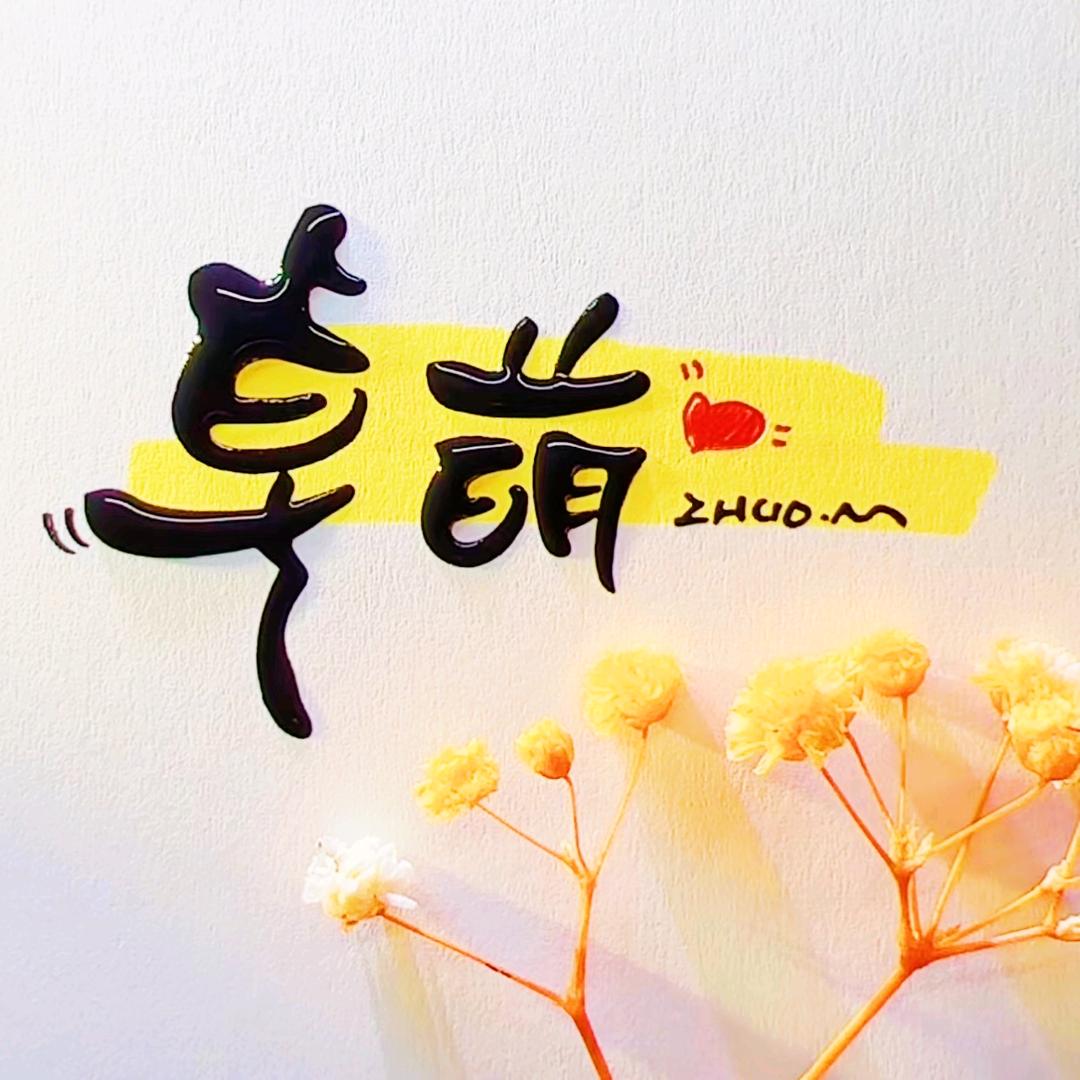 卓萌
ZHUO.M